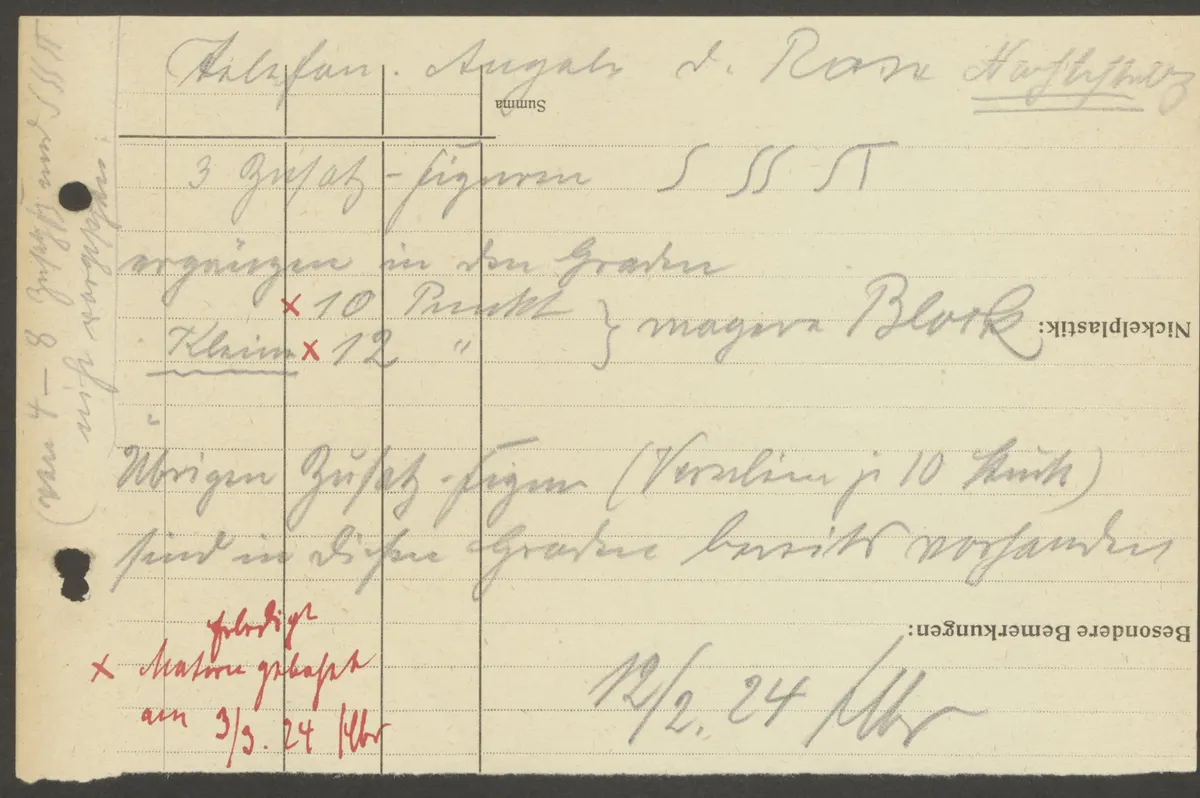 Telefon. Angabe d. Rose
Summa
3 Zusatz-Figuren ſ ſſ
ergänzen in den Graden
× 10 Punkt
Kleine × 12 " } magere Block
Nickelplastik:
Übrigen Zusatz-Figuren (Versalien je 10 Stück)
sind in diesen Graden bereits vorhanden
Besondere Bemerkungen:
12/2. 24
erledigt
× Matern
am 3/3. 24
(von 4 – 8 und
nicht